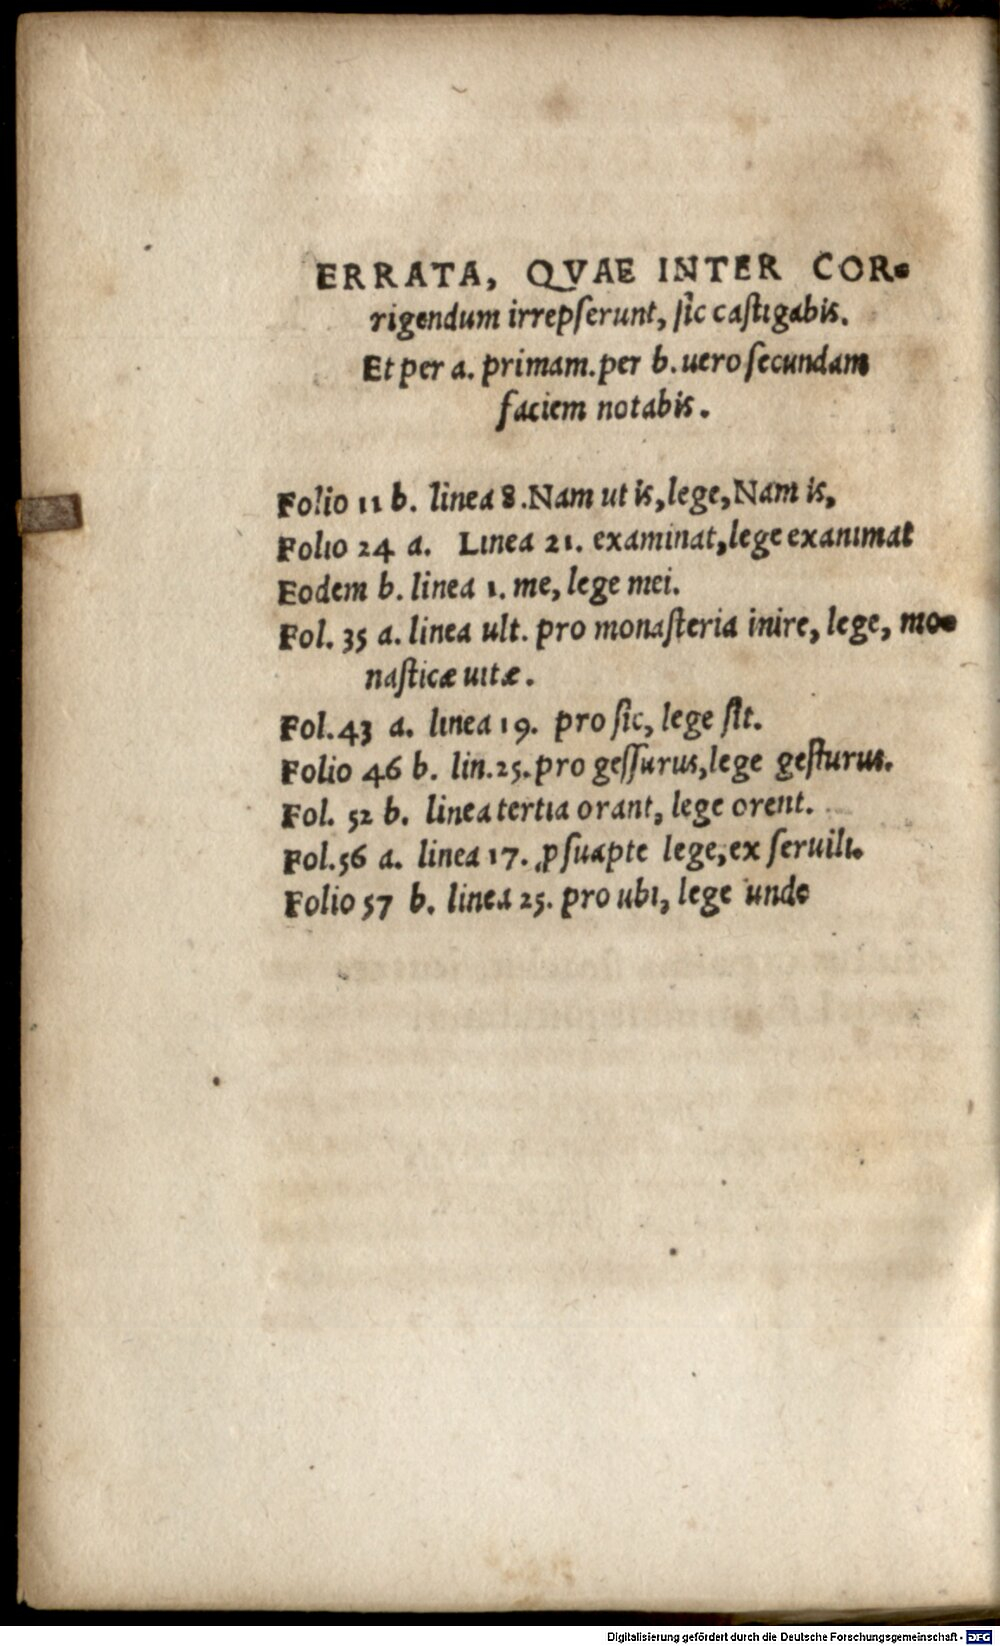 ERRATA, QVAE INTER COR-
rigendum irrepſerunt, ſic caſtigabis.
Et per a. primam. per b. uero ſecundam
faciem notabis.
Folio 11 b. linea 8. Nam ut is, lege, Nam is,
Folio 24 a. Linea 21. examinat, lege exanimat
Eodem b. linea 1. me, lege mei.
Fol. 35 a. linea ult. pro monaſteria inire, lege, mo-
naſticæ uitæ.
Fol. 43 a. linea 19. pro ſic, lege ſit.
Folio 46 b. lin. 25. pro geſſurus, lege geſturus.
Fol. 52 b. linea tertia orant, lege orent.
Fol. 56 a. linea 17. ꝓ ſuapte lege, ex ſeruili.
Folio 57 b. linea 25. pro ubi, lege unde
Digitalisierung gefördert durch die Deutsche Forschungsgemeinschaft - DFG